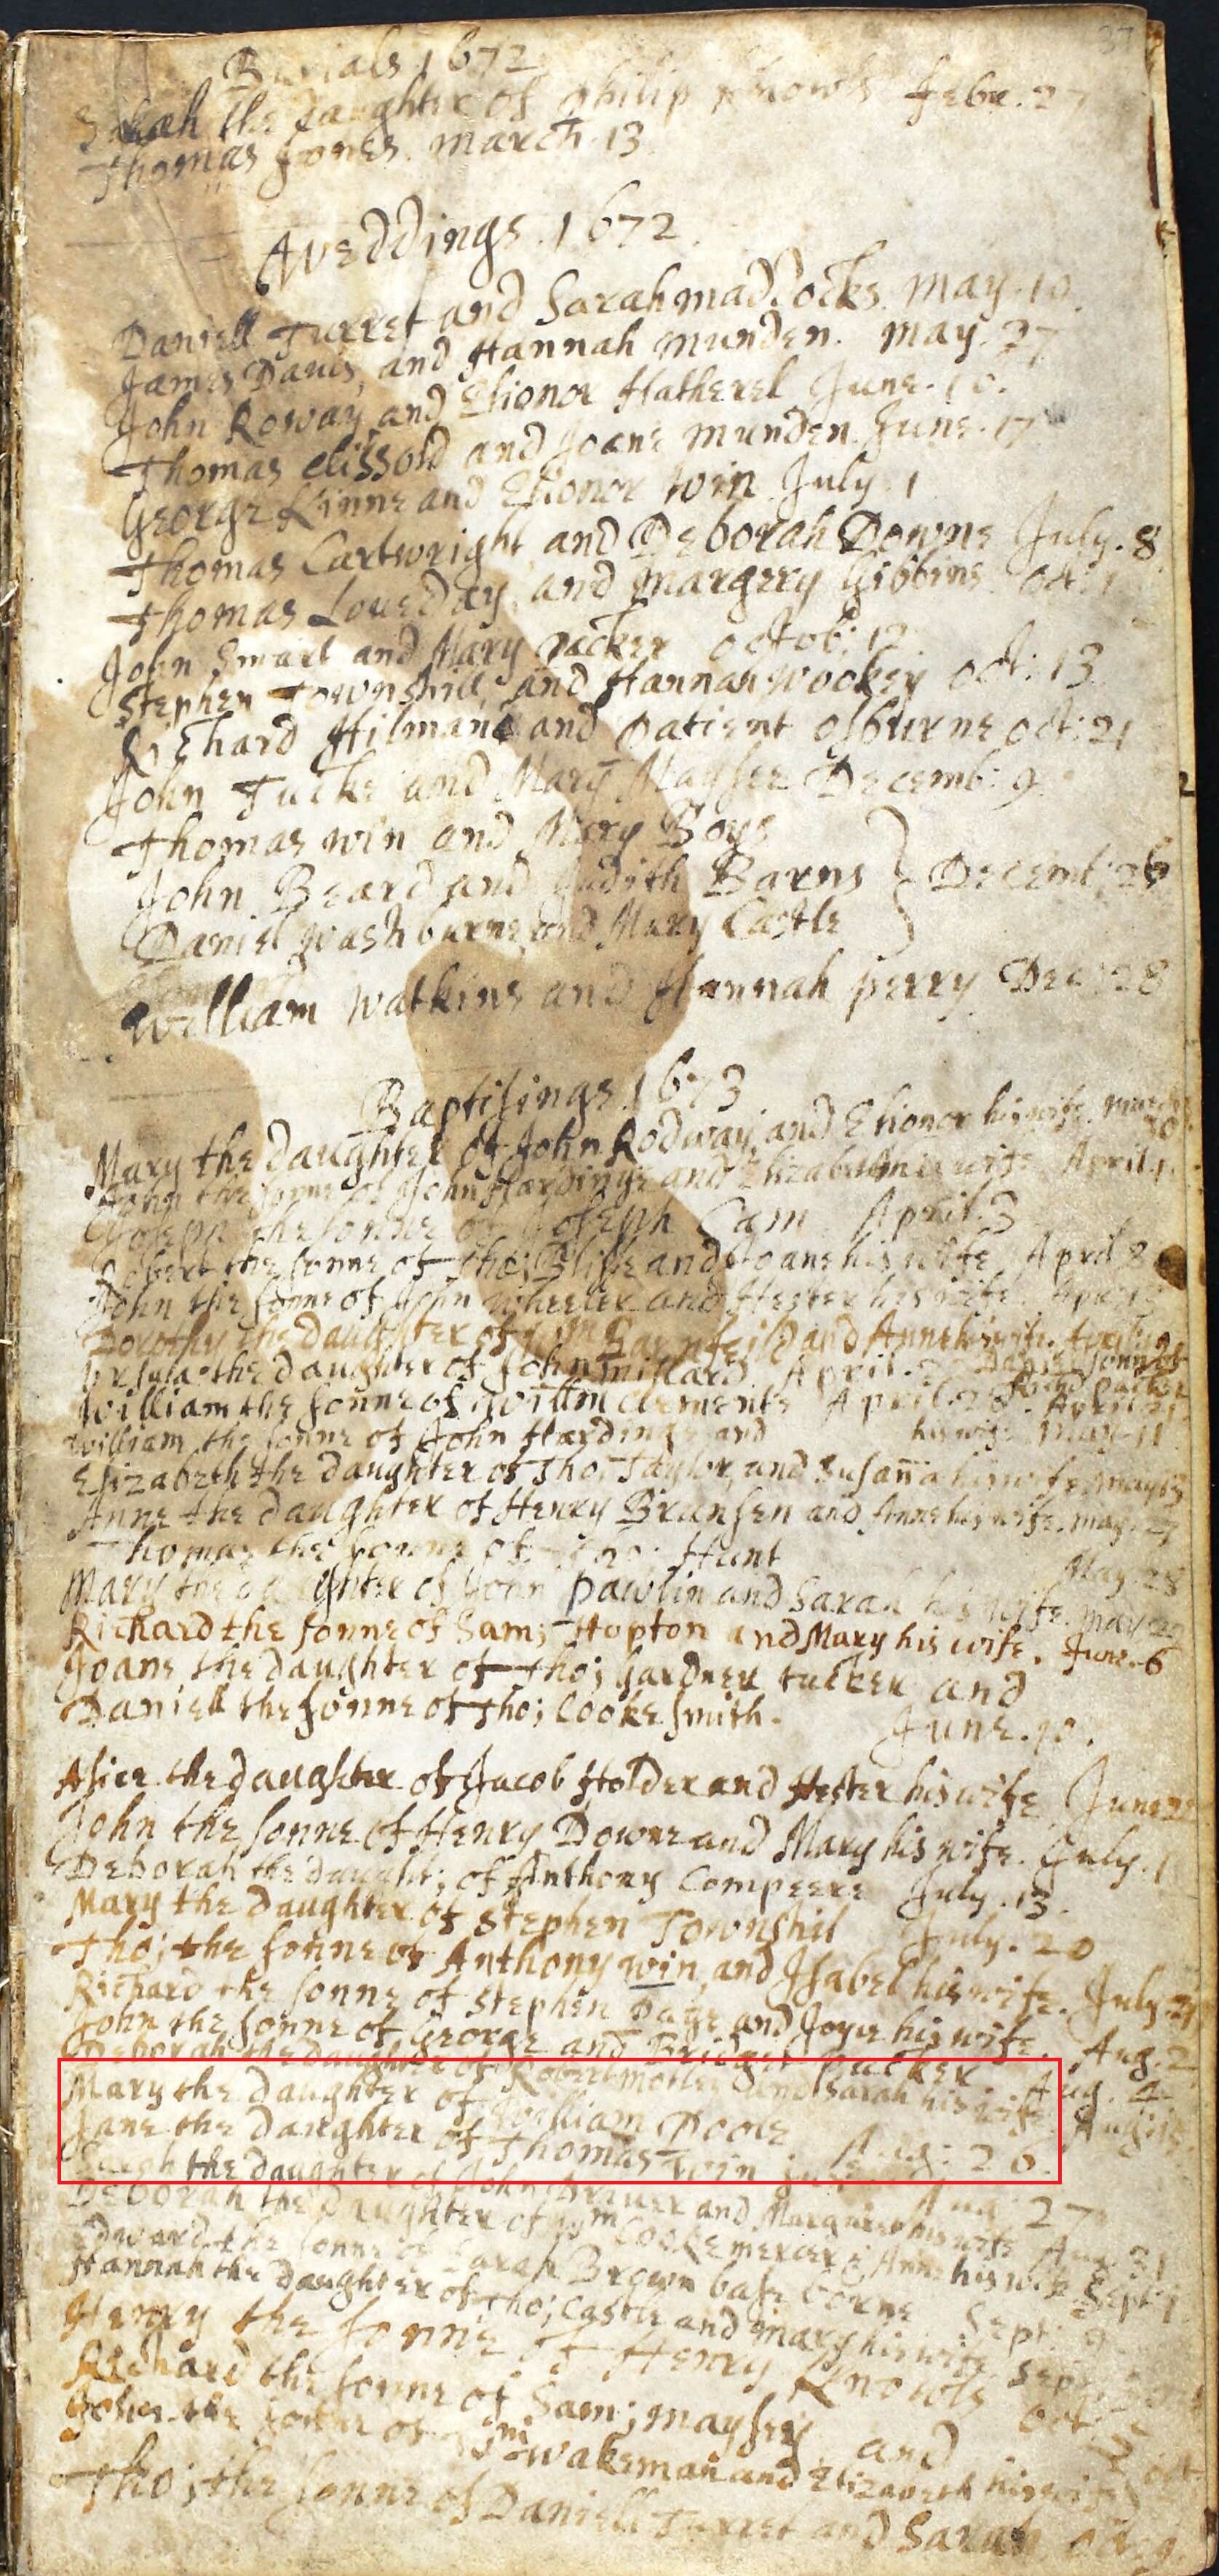 37
Burials 1672
Sarah the daughter of Philip Knowls Febr. 27
Thomas Jones. March. 13
Weddings. 1672.
Daniell Turret and Sarah Maddocks. May. 10
James Davis, and Hannah Munden. May. 27
John Roway and Elionor Hatherel June. 10.
Thomas Clissold and Joane Munden. June. 17
George Kinne and Elionor Win July. 1
Thomas Cartwright and Deborah Downe July. 8
Thomas Loveday, and Margery Gibbins Oct: 1
John Smart and Mary Packer Octob: 12
Stephen Townshill, and Hannah Wookey Oct: 13
Richard Hilman and Patient Osburne Oct: 21
John Tucke and Mary Mayser Decemb: 9
Thomas Win and Mary Boys
John Beard and Judith Barns } Decemb: 26
Daniel Washburne and Mary Castle
William Watkins and Hannah Perry Dec: 28
Baptisings. 1673
Mary the daughter of John Rodway, and Elionor his wife. March 30
John the sonne of John Hardinge and Elizabeth his wife April. 1.
Joseph the sonne of Joseph Cam. April. 3
Robert the sonne of Tho; Blisse and Joane his wife April 8
John the sonne of John Wheeler and Hester his wife. April
Dorothy the daughter of and Anne his wife. April
Ursula the daughter of John Millard April. 2 Daniel sonn of
William the sonne of Willm Clements April. 28. Richd Packer April 21
William the sonne of John Hardinge and his wife May. 11
Elizabeth the daughter of Tho: Taylor, and Susanna his wife May 13
Anne the daughter of Henry Bransen and Anne his wife. May. 27
Thomas the sonne of Tho: Hunt May. 28
Mary the daughter of John Pawlin and Sarah his wife. May
Richard the sonne of Sam; Hopton and Mary his wife. June. 6
Joane the daughter of Tho; Gardner tucker and
Daniell the sonne of Tho; Cooke smith. June. 10.
Alice the daughter of Jacob Holder and Hester his wife June 22
John the sonne of Henry Downe and Mary his wife. July. 1
Deborah the daught; of Anthony Compeere July. 13.
Mary the daughter of Stephen Townshil July. 20
Tho; the sonne of Anthony Win, and Isabel his wife. July. 21
Richard the sonne of Stephen Page and Joyce his wife. Aug. 2
John the sonne of George and Bridget Packer Aug. 4
Deborah the daughter of Robert and Sarah his wife. Aug:
Mary the daughter of William Poole Aug: 20.
Jane the daughter of Thomas Win
Sarah the daughter of John and Margaret his wife Aug: 27
Deborah the daughter of Wm Cooke mercer & Anne his wife Aug. 31
Edward the sonne of Sarah Brown base borne Sept:
Hannah the daughter of Tho; Castle and Mary his wife. Sept: 9
Henry the sonne of Henry Knowls Sept.
Richard the sonne of Sam; Maysey, and Oct:
John the sonne of Wm Wakeman and Elizabeth his wife } Oct.
Tho; the sonne of Daniell Turret and Sarah Oct. 9.